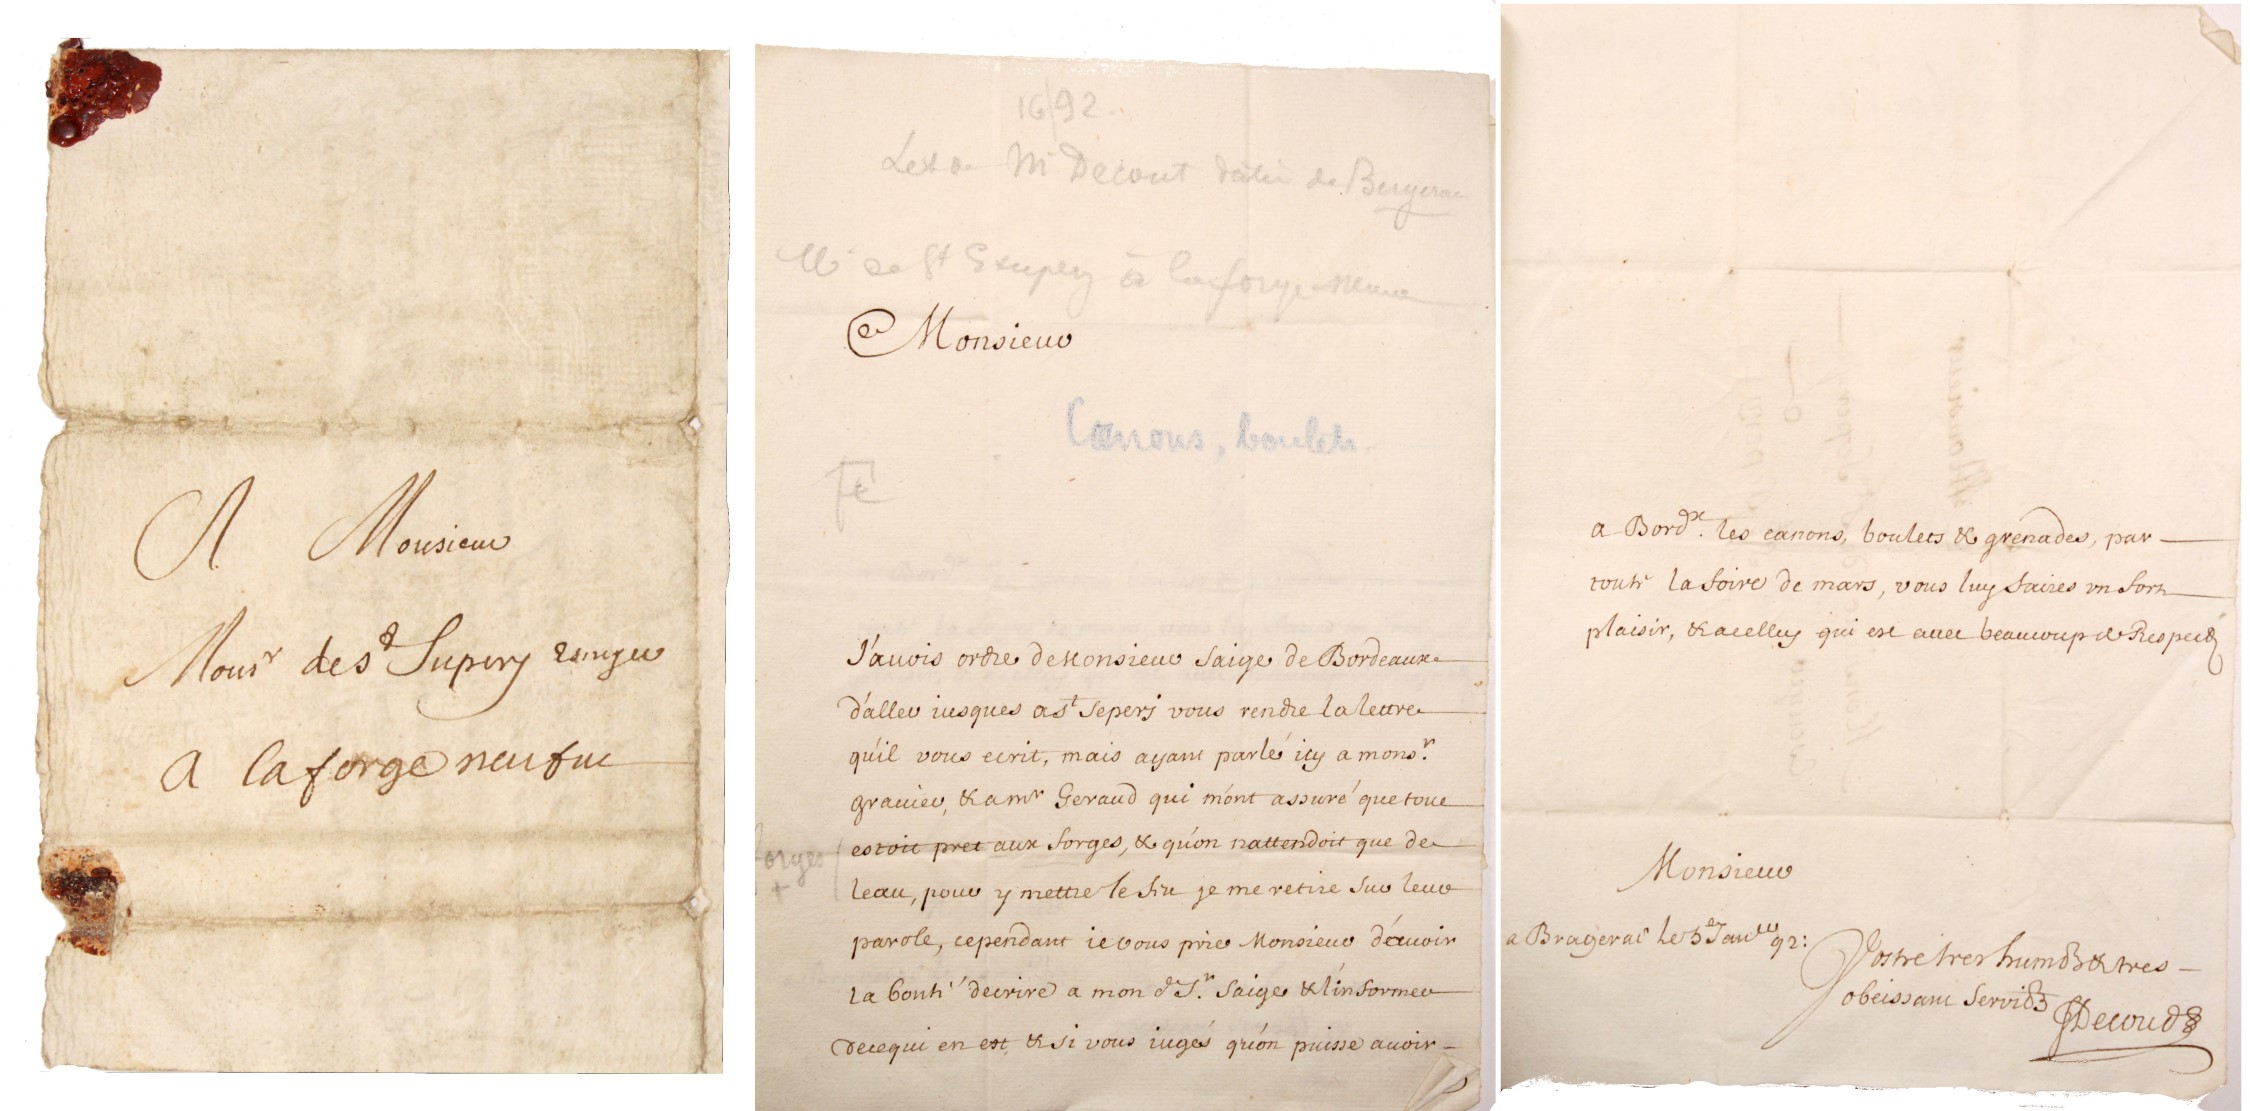 A Monsieur
Monsr de st Supery
A la forge neufue
1692
Let de Mr Decout datée de Bergerac
Mr de St Exupery à la forge neuve
Monsieur
Canons, boulets
J'auois ordre de Monsieur Saige de Bordeaux
d'aller iusques a st Seperj vous rendre la lettre
qu'il vous ecrit, mais ayant parlé icy a monsr.
grauier, & a mr Geraud qui m'ont assuré que tout
estoit pret aux forges, & qu'on n'attendoit que de
forges +
leau, pour y mettre le feu je me retire sur leur
parole, cependant ie vous prie Monsieur d'auoir
la bonté d'ecrire a mon d Sr. Saige & l'informer
de ce qui en est, & si vous iugés qu'on puisse auoir
a Bordx. les canons, boulets & grenades, par
toute la foire de mars, vous luy faires un fort
plaisir, & a celluy qui est auec beaucoup de Respect
Monsieur
a Bragerac le 5e Janer 92:
Vostre tres humb & tres
obeissant Servit
Decoud